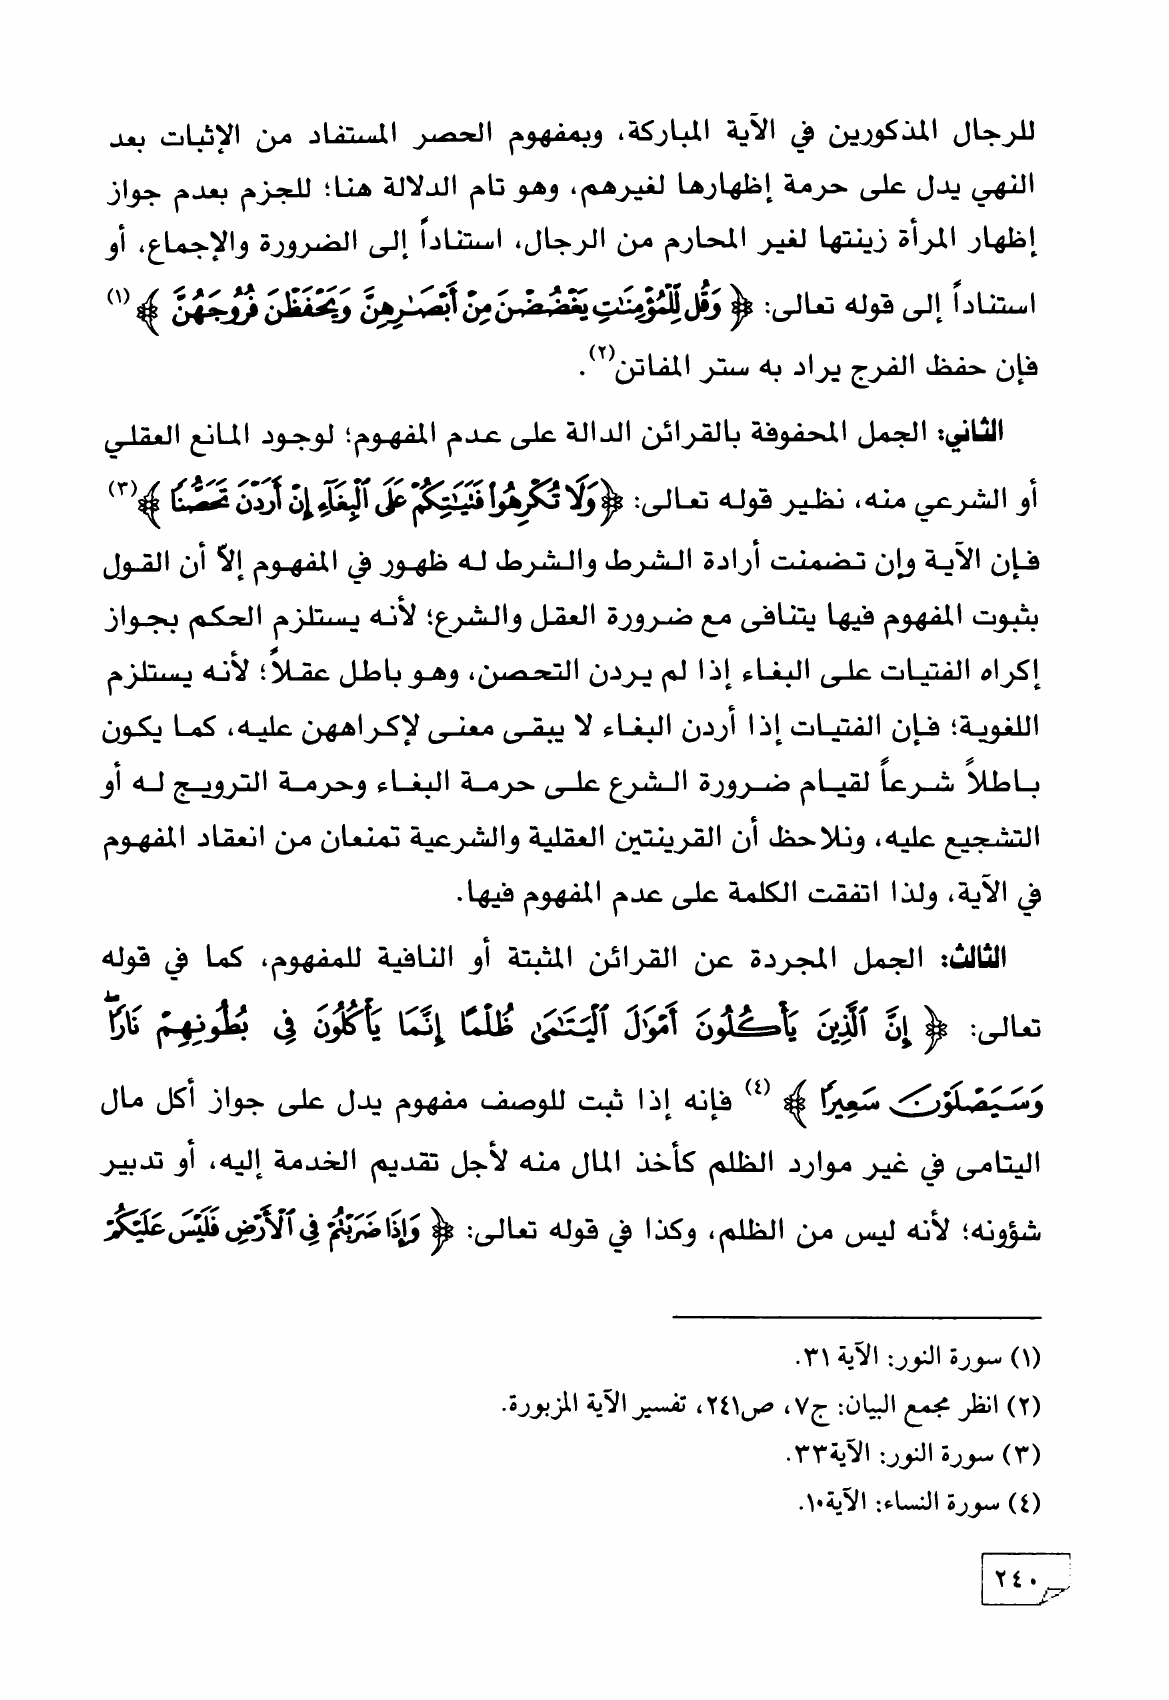 للرجال المذكورين في الآية المباركة، وبمفهوم الحصر المستفاد من الإثبات بعد
النهي يدل على حرمة إظهارها لغيرهم، وهو تام الدلالة هنا؛ للجزم بعدم جواز
إظهار المرأة زينتها لغير المحارم من الرجال، استناداً إلى الضرورة والإجماع، أو
استناداً إلى قوله تعالى: ﴿ وَقُل لِّلْمُؤْمِنَٰتِ يَغْضُضْنَ مِنْ أَبْصَٰرِهِنَّ وَيَحْفَظْنَ فُرُوجَهُنَّ ﴾(١)
فإن حفظ الفرج يراد به ستر المفاتن(٢).
الثاني: الجمل المحفوفة بالقرائن الدالة على عدم المفهوم؛ لوجود المانع العقلي
أو الشرعي منه، نظير قوله تعالى: ﴿وَلَا تُكْرِهُوا۟ فَتَيَٰتِكُمْ عَلَى ٱلْبِغَآءِ إِنْ أَرَدْنَ تَحَصُّنًا ﴾(٣)
فإن الآية وإن تضمنت أرادة الشرط والشرط له ظهور في المفهوم إلاّ أن القول
بثبوت المفهوم فيها يتنافى مع ضرورة العقل والشرع؛ لأنه يستلزم الحكم بجواز
إكراه الفتيات على البغاء إذا لم يردن التحصن، وهو باطل عقلاً؛ لأنه يستلزم
اللغوية؛ فإن الفتيات إذا أردن البغاء لا يبقى معنى لإكراههن عليه، كما يكون
باطلاً شرعاً لقيام ضرورة الشرع على حرمة البغاء وحرمة الترويج له أو
التشجيع عليه، ونلاحظ أن القرينتين العقلية والشرعية تمنعان من انعقاد المفهوم
في الآية، ولذا اتفقت الكلمة على عدم المفهوم فيها.
الثالث: الجمل المجردة عن القرائن المثبتة أو النافية للمفهوم، كما في قوله
تعالى: ﴿ إِنَّ ٱلَّذِينَ يَأْكُلُونَ أَمْوَٰلَ ٱلْيَتَٰمَىٰ ظُلْمًا إِنَّمَا يَأْكُلُونَ فِى بُطُونِهِمْ نَارًا ۖ
وَسَيَصْلَوْنَ سَعِيرًا ﴾ (٤) فإنه إذا ثبت للوصف مفهوم يدل على جواز أكل مال
اليتامى في غير موارد الظلم كأخذ المال منه لأجل تقديم الخدمة إليه، أو تدبير
شؤونه؛ لأنه ليس من الظلم، وكذا في قوله تعالى: ﴿ وَإِذَا ضَرَبْتُمْ فِى ٱلْأَرْضِ فَلَيْسَ عَلَيْكُمْ
(١) سورة النور: الآية ٣١.
(٢) انظر مجمع البيان: ج٧، ص٢٤١، تفسير الآية المزبورة.
(٣) سورة النور: الآية٣٣.
(٤) سورة النساء: الآية١٠.
٢٤٠